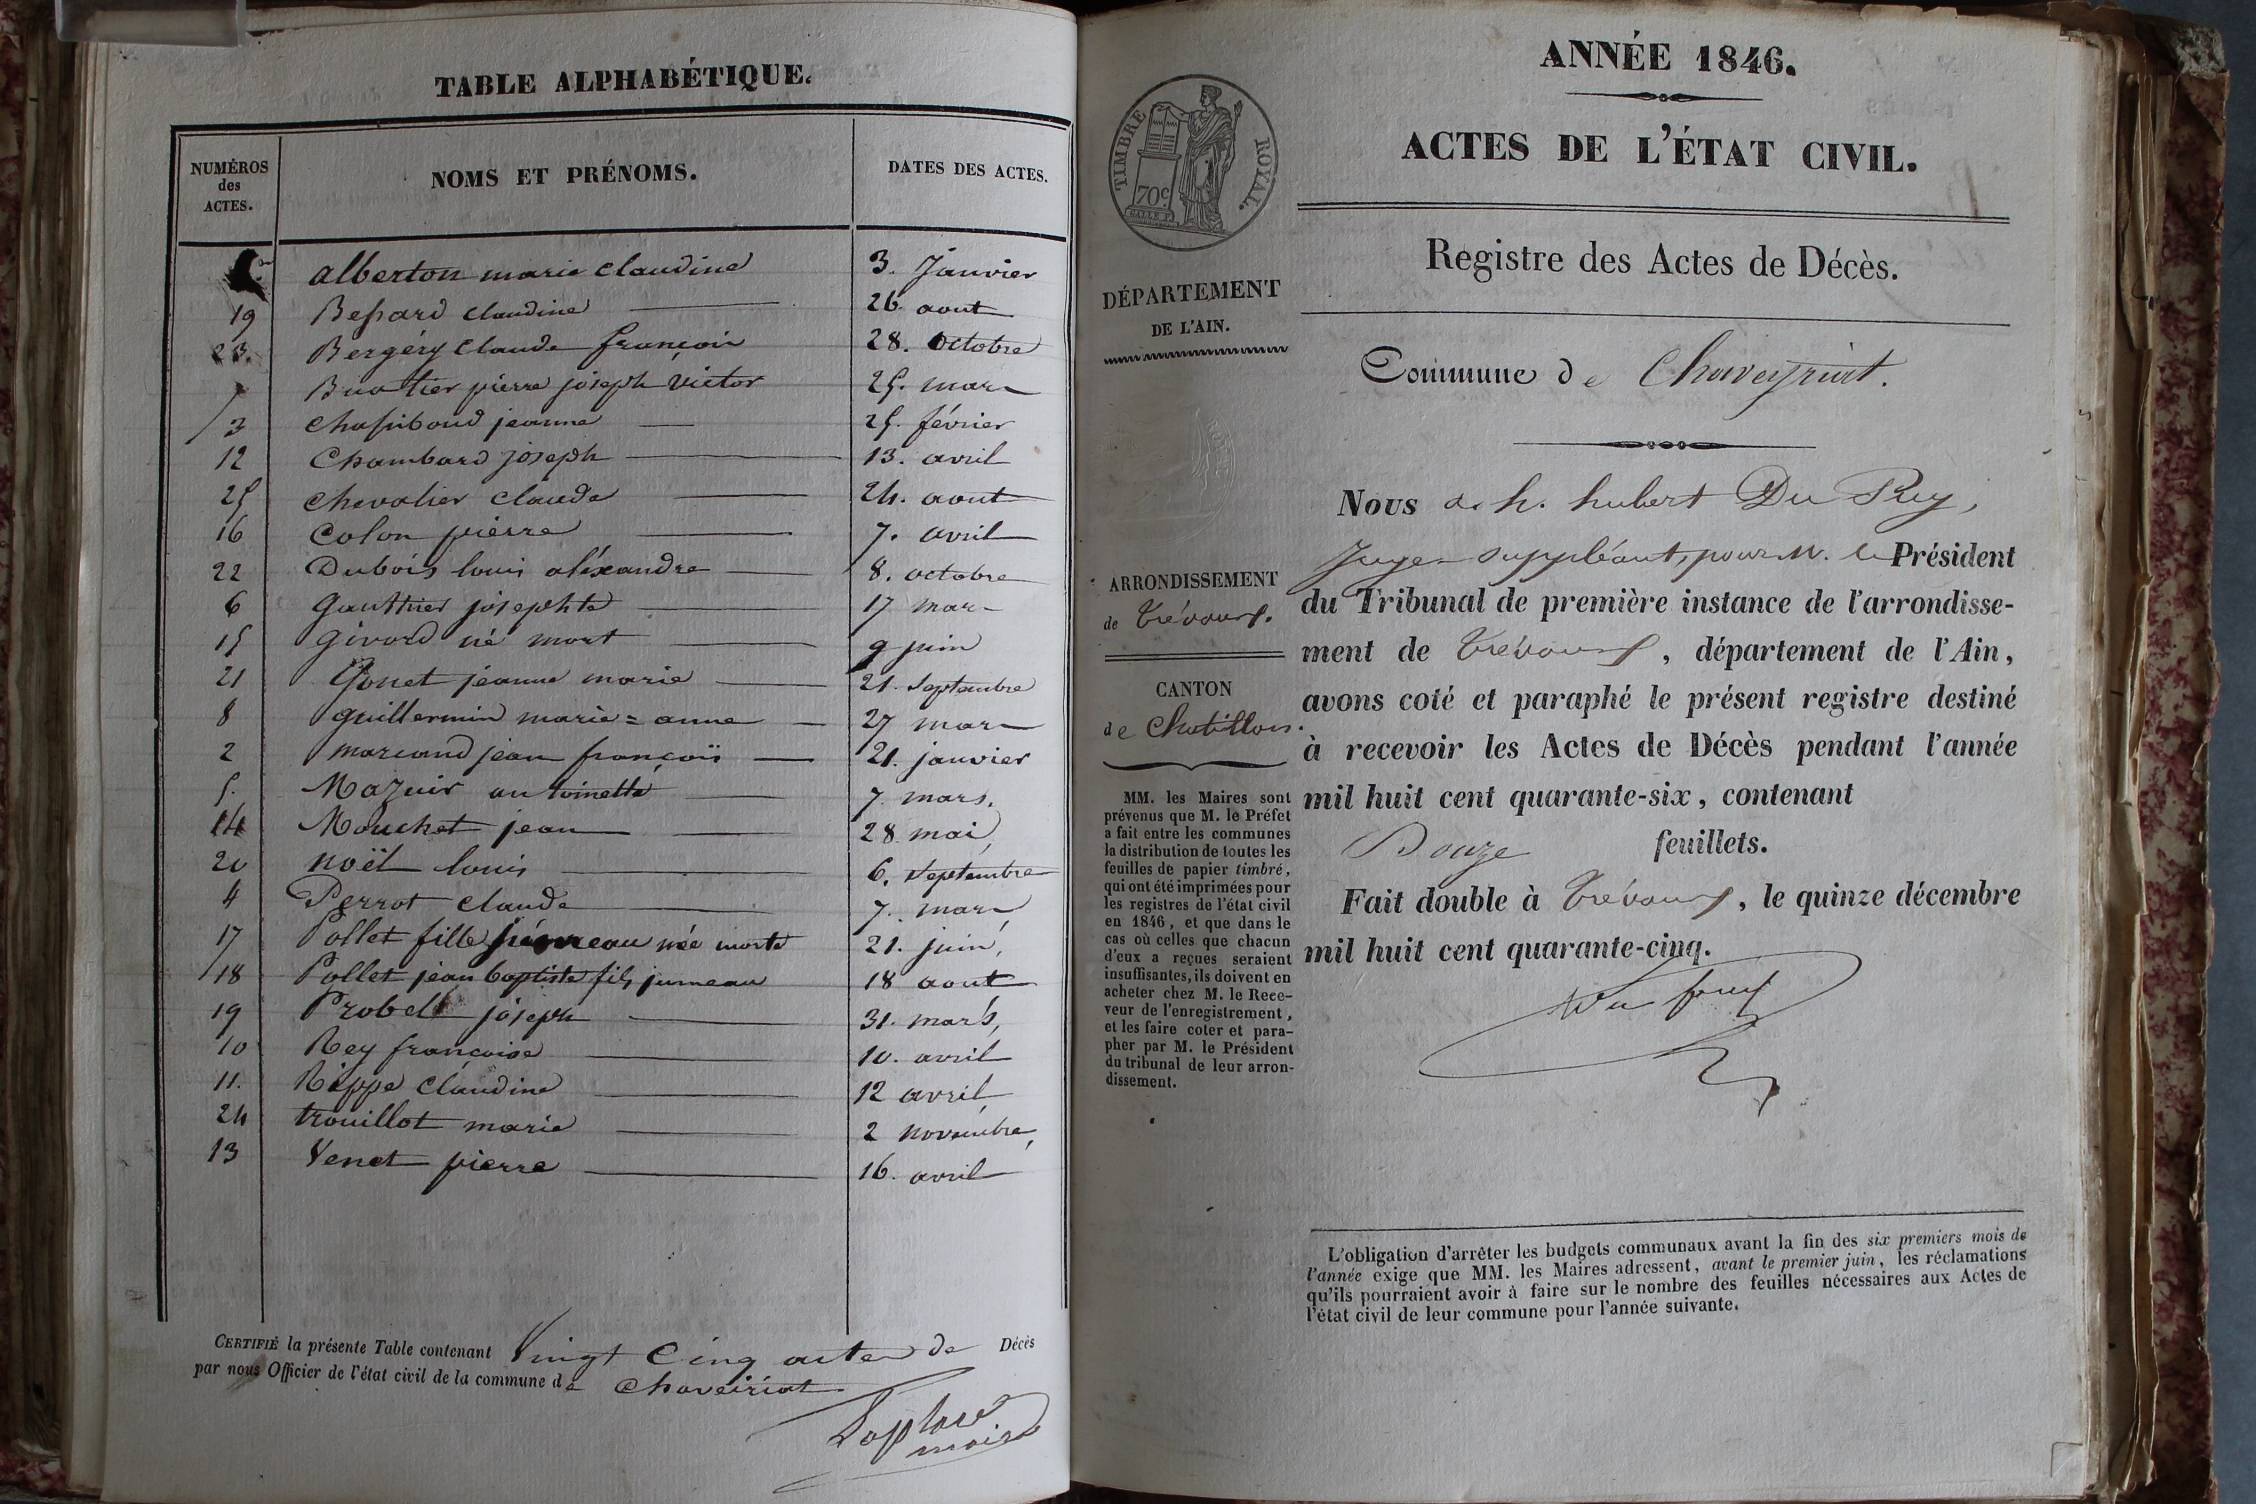 TABLE ALPHABÉTIQUE.
NUMÉROS des ACTES.
NOMS ET PRÉNOMS.
DATES DES ACTES.
alberton marie claudine 3. Janvier
19 Bessard claudine 26 aout
23. Bergéry claude françois 28. octobre
Buatier pierre joseph victor 25. mars
3 jeanne 25. février
12 Chambard joseph 13. avril
25 chevalier claude 24. aout
16 Colon pierre 7. avril
22 Dubois louis aléxandre 8. octobre
6 Gauthier josephte 17 mars
15 givord né mort 9 juin
21 Gonet jeanne marie 21. septembre
8 guillermin marie = anne 27 mars
2 marcand jean françois 21. janvier
5. Mazuir antoinette 7. mars,
14 Mouchet jean 28. mai,
20 noël louis 6. septembre
4 Perrot claude 7. mars
17 Pollet fille jumeau née morte 21. juin,
18 Pollet jean baptiste fils jumeau 18 aout
19 Probell joseph 31. mars,
10 Rey francoise 10. avril
11. Rippe claudine 12 avril,
24 trouillot marie 2 novembre,
13 Venet pierre 16. avril
CERTIFIÉ la présente Table contenant Vingt Cinq actes de Décès
par nous Officier de l'état civil de la commune de Chaveiriat
Laplace
maire
ANNÉE 1846.
ACTES DE L'ÉTAT CIVIL.
TIMBRE ROYAL.
70c.
Registre des Actes de Décès.
DÉPARTEMENT
DE L'AIN.
Commune de Chaveyriat.
Nous a. h. hubert Du Puy,
Juge suppléant, pour M. le Président
du Tribunal de première instance de l'arrondisse-
ment de Trévoux, département de l'Ain,
avons coté et paraphé le présent registre destiné
à recevoir les Actes de Décès pendant l'année
mil huit cent quarante-six, contenant
Douze feuillets.
Fait double à Trévoux, le quinze décembre
mil huit cent quarante-cinq.
Du puy
ARRONDISSEMENT
de Trévoux.
CANTON
de Chatillon.
MM. les Maires sont
prévenus que M. le Préfet
a fait entre les communes
la distribution de toutes les
feuilles de papier timbré,
qui ont été imprimées pour
les registres de l'état civil
en 1846, et que dans le
cas où celles que chacun
d'eux a reçues seraient
insuffisantes, ils doivent en
acheter chez M. le Rece-
veur de l'enregistrement,
et les faire coter et para-
pher par M. le Président
du tribunal de leur arron-
dissement.
L'obligation d'arrêter les budgets communaux avant la fin des six premiers mois de
l'année exige que MM. les Maires adressent, avant le premier juin, les réclamations
qu'ils pourraient avoir à faire sur le nombre des feuilles nécessaires aux Actes de
l'état civil de leur commune pour l'année suivante.